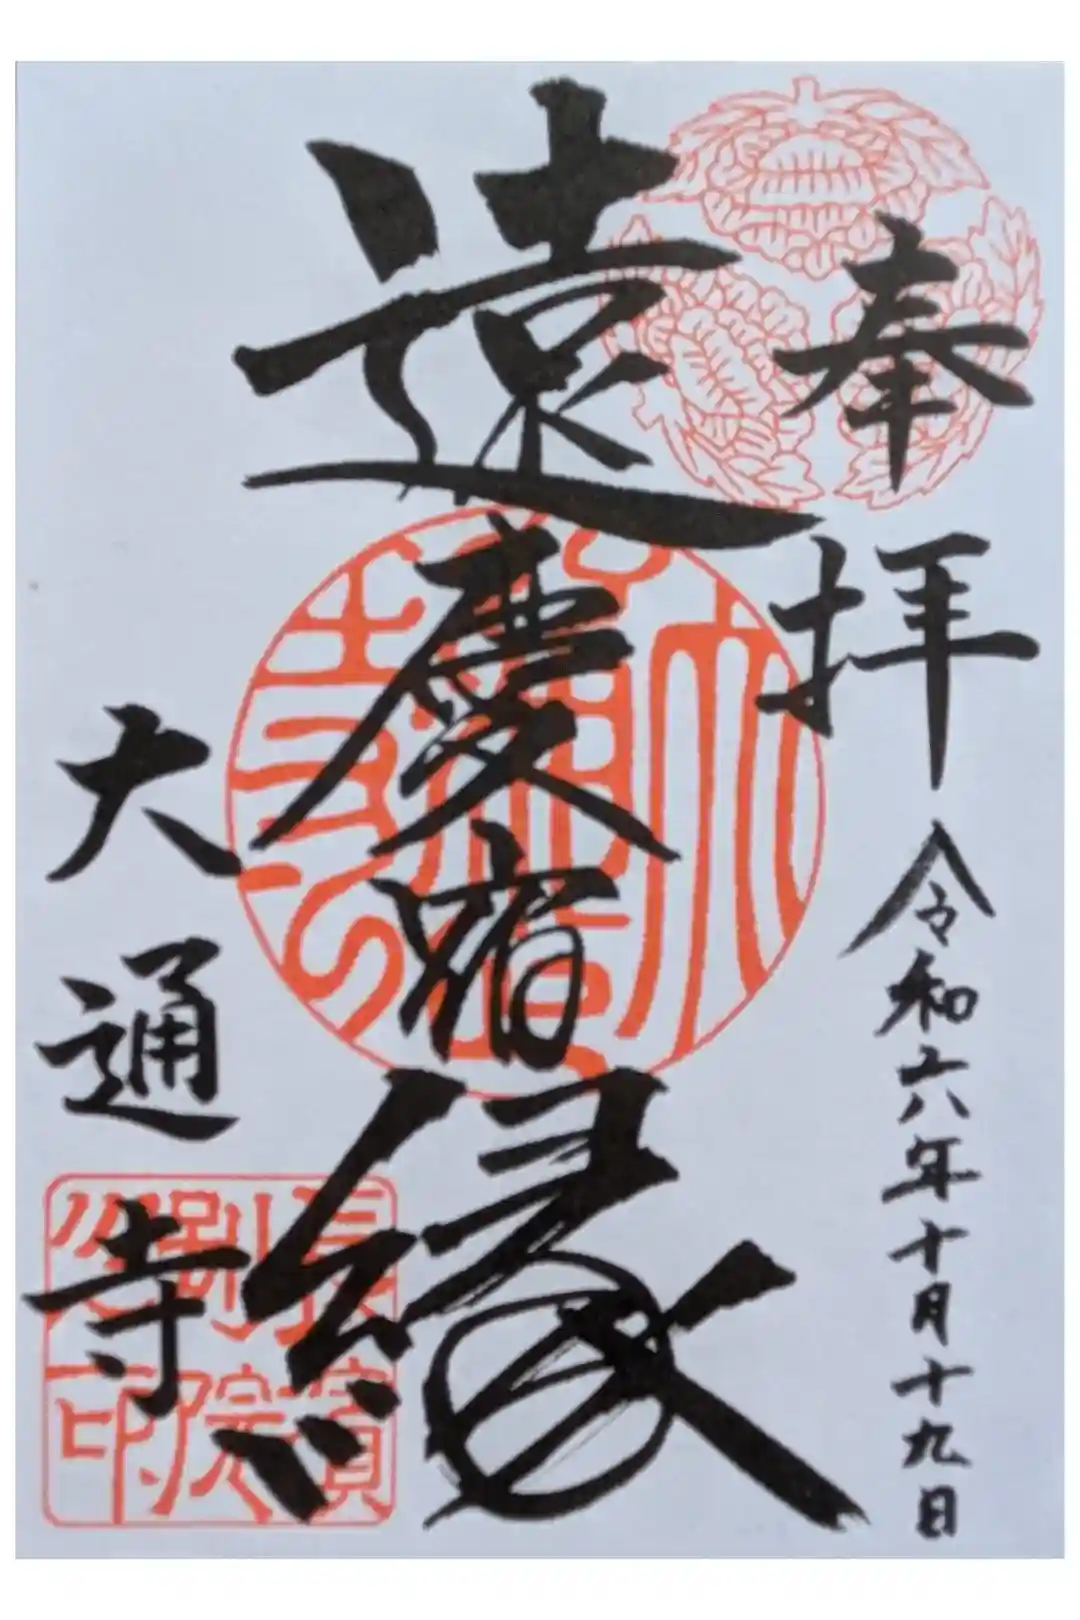 奉拝
令和六年十月十九日
遠慶宿縁
大通寺
長濱
別院
之印